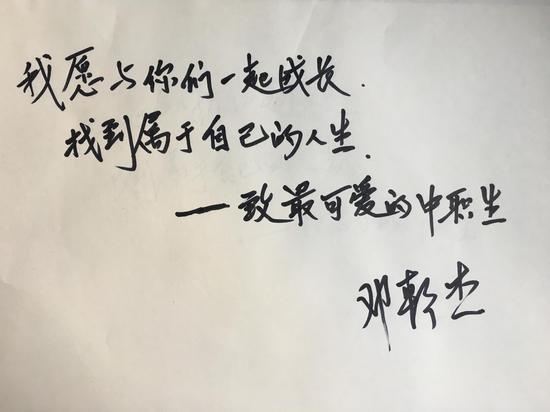 我愿与你们一起成长.
找到属于自己的人生.
——致最可爱的中职生
邓乾杰